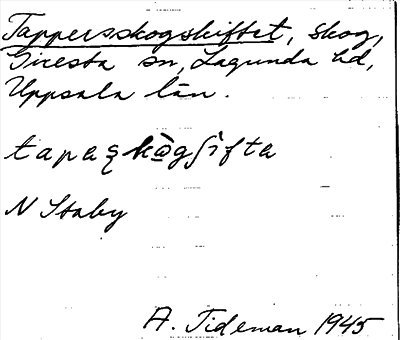 Tappersskogskiftet, skog,
Giresta sn, Lagunda hd,
Uppsala län.
N Staby
A. Tideman 1945